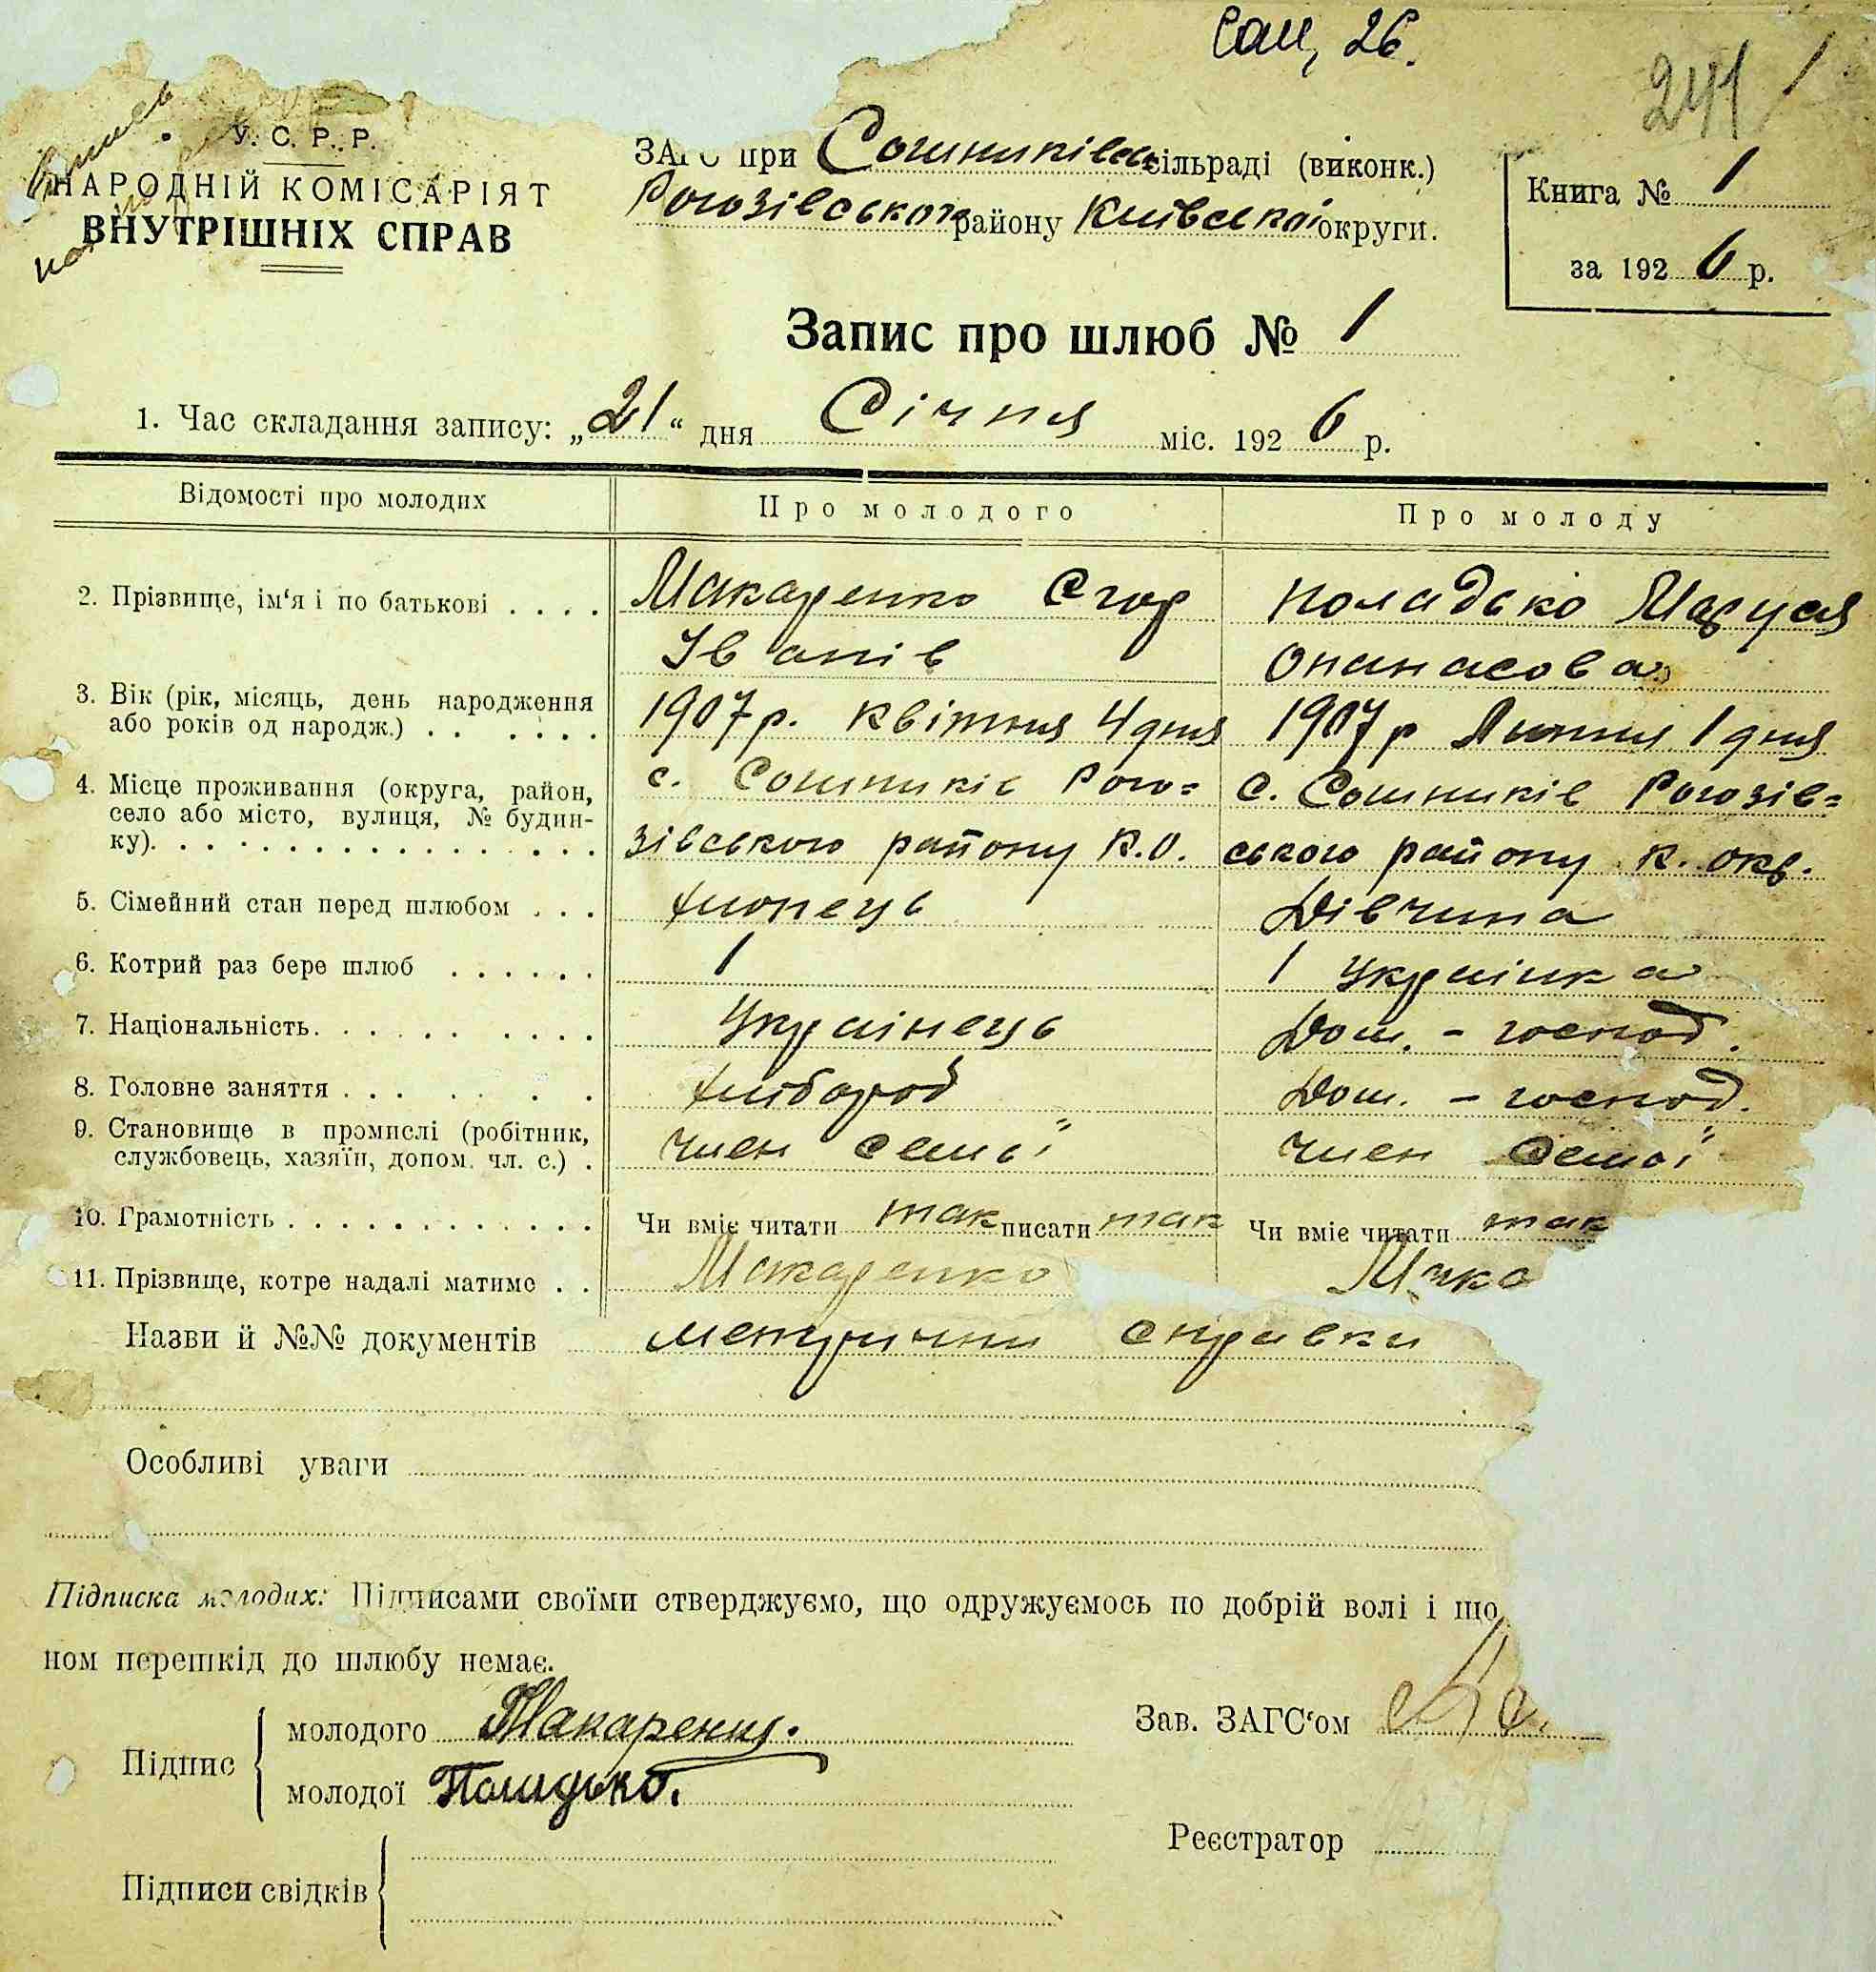 26.
241 1
У. С. Р. Р.
НАРОДНІЙ КОМІСАРІЯТ
ВНУТРІШНІХ СПРАВ
ЗАГС при Сошниківськ сільраді (виконк.)
Рогозівського району Київської округи.
Книга № 1
за 1926 р.
Запис про шлюб № 1
1. Час складання запису: „21“ дня Січня міс. 1926 р.
Відомості про молодих Про молодого Про молоду
2. Прізвище, ім‘я і по батькові . . . . Макаренко Єгор Поладько Маруся
Іванів Опанасова
3. Вік (рік, місяць, день народження
або років од народж.) . . . . . . 1907 р. Квітня 4 дня 1907 р Липня 1 дня
4. Місце проживання (округа, район, с. Сошників Рого= С. Сошників Рогозів=
село або місто, вулиця, № будин-
ку). . . . . . . . . . . . . . . . . зівського району К.О. ського району К. окр.
5. Сімейний стан перед шлюбом . . . Хлопець Дівчина
6. Котрий раз бере шлюб . . . . . . 1 1 Українка
7. Національність. . . . . . . . . . Українець Дом. - господ.
8. Головне заняття . . . . . . . Хлібороб Дом. - господ.
9. Становище в промислі (робітник,
службовець, хазяїн, допом. чл. с.) . член семьї член семьї
10. Грамотність . . . . . . . . . . . . . Чи вміє читати так писати так Чи вміє читати так
11. Прізвище, котре надалі матиме . . Макаренко Мака
Назви й №№ документів метричні справки
Особливі уваги
Підписка молодих: Підписами своїми стверджуємо, що одружуємось по добрій волі і що
ном перешкід до шлюбу немає.
Підпис молодого Макаренко.
молодої Поладько.
Зав. ЗАГС‘ом
Реєстратор
Підписи свідків